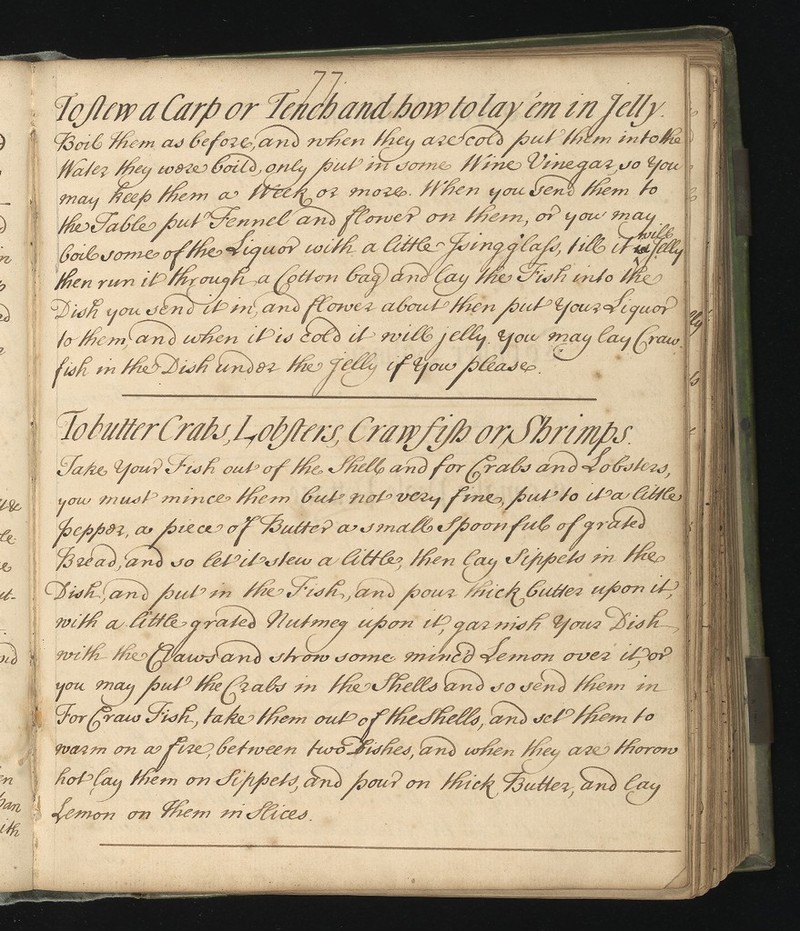 77.
To stew a Carp or Tench and how to lay 'em in Jelly.
Boil them as before, and when they are cold put them into the
Water they were boild, only put in some Wine Vinegar, so you
may keep them a Week or more. When you send them to
the Table put Fennel and flower on them, or you may
boil some of the Liquor with a little Jsingglass, till it will Jelly
then run it through a Cotton bag and lay the Fish into the
Dish you send it in, and flower about then put your Liquor
to them, and when it is cold it will jelly. you may lay Craw
fish in the Dish under the jelly if you please.
To butter Crabs, Lobsters, Craw fish or Shrimps.
Take your Fish out of the Shell and for Crabs and Lobsters,
you must mince them but not very fine, put to it a little
pepper, a piece of Butter a small Spoonfull of grated
Bread, and so let it stew a little, then lay Sippets in the
Dish, and put in the Fish, and pour thick butter upon it,
with a little grated Nutmeg upon it, garnish your Dish
with the Claws and strow some minc'd Lemon over it, or
you may put the Crabs in the Shells and so send them in
For Craw Fish, take them out of the Shells, and set them to
warm on a fire, between two Dishes, and when they are thorow
hot lay them on Sippets, and pour on thick Butter, and lay
Lemon on them in Slices.